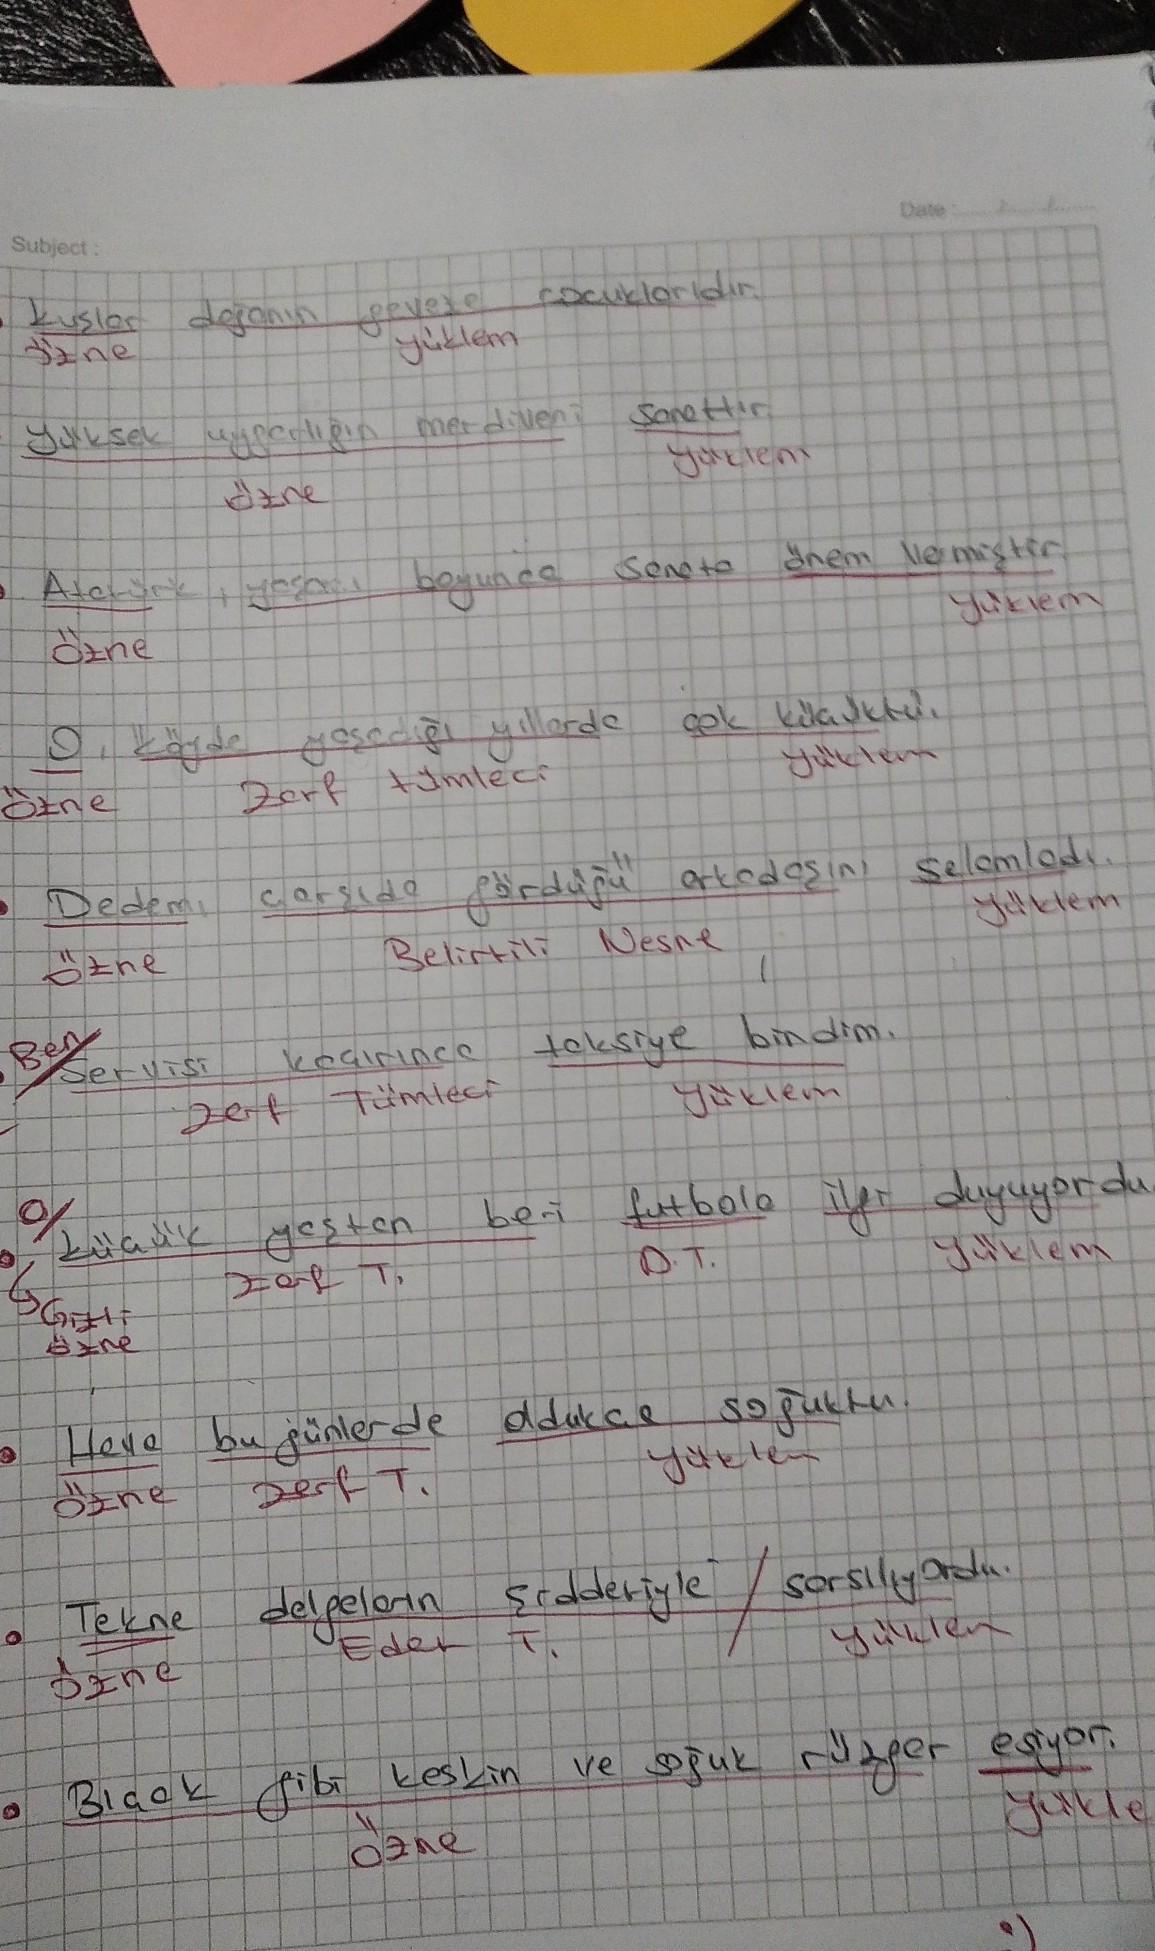 Date:
Subject:
Kuşlar doğanın geveze çocuklarıdır.
özne yüklem
Yüksek uygarlığın merdiveni sanattır.
yüklem
özne
Atatürk, yaşamı boyunca sanata önem vermiştir.
yüklem
özne
O, köyde yaşadığı yıllarda çok küçüktü.
özne zarf tümleci yüklem
Dedem, çarşıda gördüğü arkadaşını selamladı.
özne Belirtili Nesne yüklem
Ben/
Servisi kaçırınca taksiye bindim.
zarf Tümleci yüklem
O/
Küçük yaştan beri futbola ilgi duyuyordu
zarf T. D.T. yüklem
Gizli
özne
Hava bu günlerde oldukça soğuktu.
özne zarf T. yüklem
Tekne dalgaların şiddetiyle / sarsılıyordu.
özne Edat T. yüklem
Bıçak gibi keskin ve soğuk rüzgar esiyor.
özne yükle